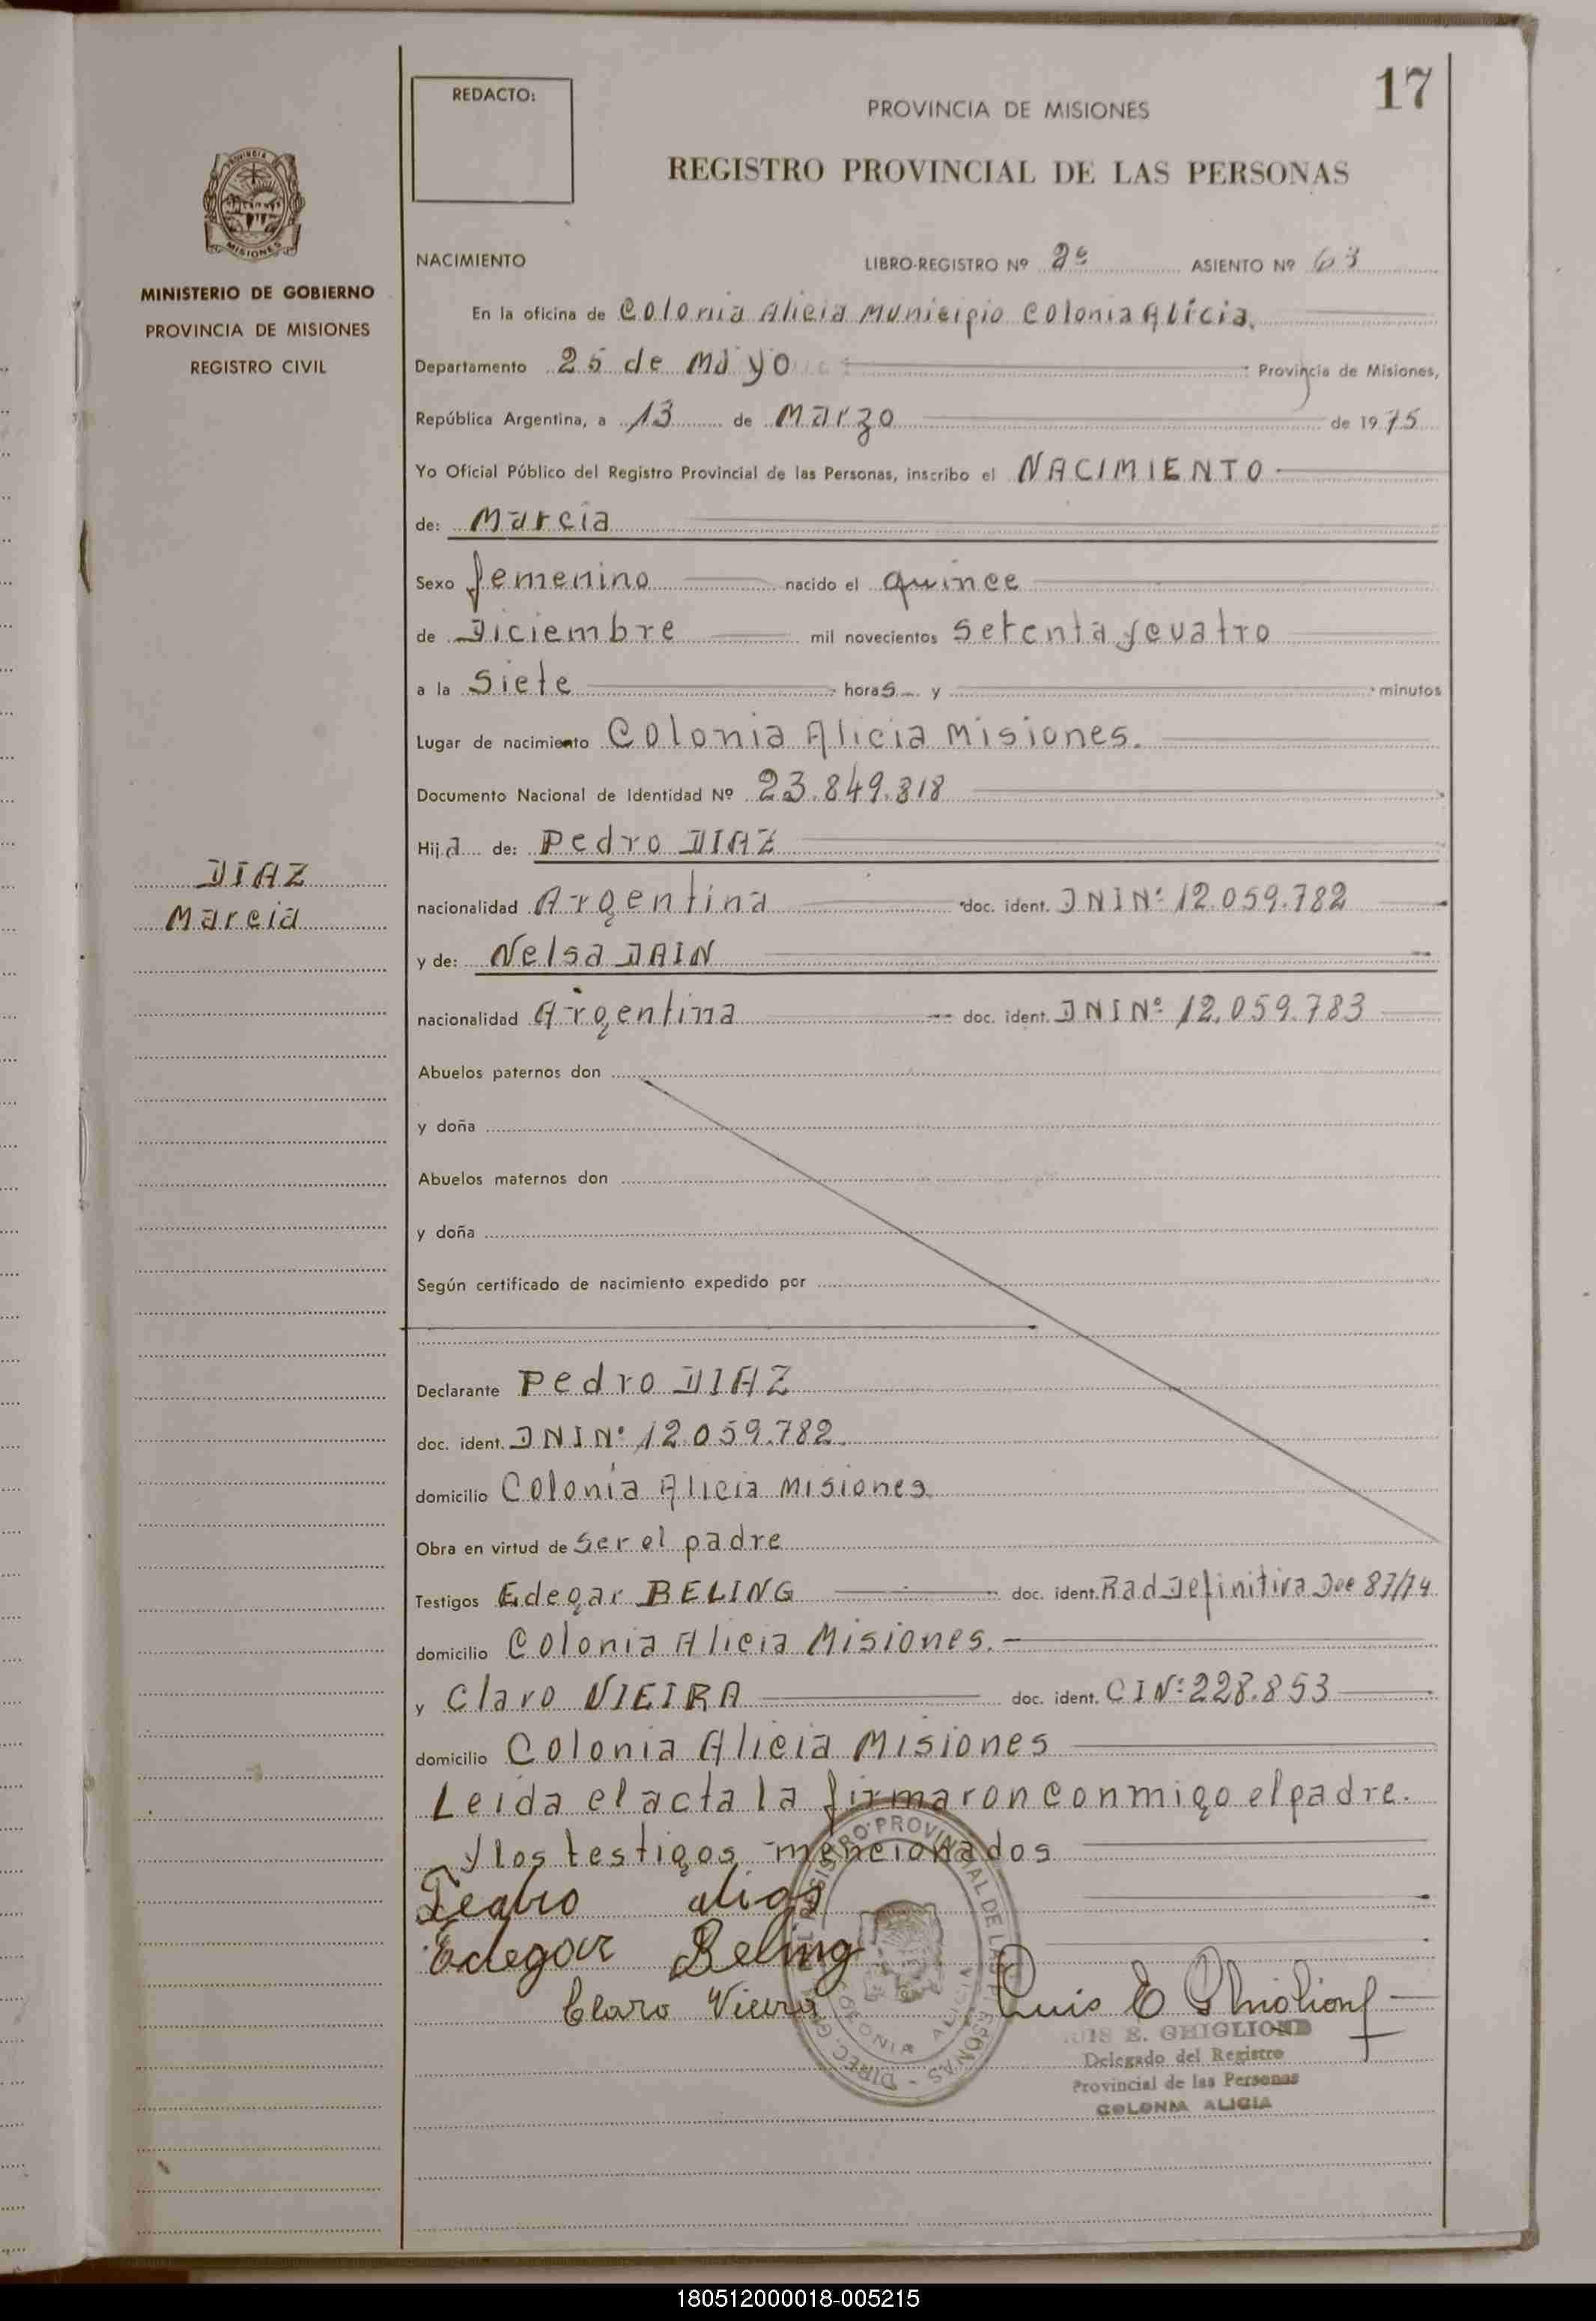 17
REDACTO:
PROVINCIA DE MISIONES
REGISTRO PROVINCIAL DE LAS PERSONAS
PROVINCIA DE
MISIONES
MINISTERIO DE GOBIERNO
PROVINCIA DE MISIONES
REGISTRO CIVIL
NACIMIENTO LIBRO-REGISTRO Nº 2º ASIENTO Nº 63
En la oficina de Colonia Alicia Municipio Colonia Alicia.
Departamento 25 de Mayo Provincia de Misiones,
República Argentina, a 13 de Marzo de 1975
Yo Oficial Público del Registro Provincial de las Personas, inscribo el NACIMIENTO
de: Marcia
Sexo femenino nacido el quince
de Diciembre mil novecientos setenta y cuatro
a la Siete horas y minutos
Lugar de nacimiento Colonia Alicia Misiones.
Documento Nacional de Identidad Nº 23.849.318
Hija de: Pedro DIAZ
DIAZ
Marcia
nacionalidad Argentina doc. ident. DNI Nº 12.059.782
y de: Nelsa DAIN
nacionalidad Argentina doc. ident. DNI Nº 12.059.783
Abuelos paternos don
y doña
Abuelos maternos don
y doña
Según certificado de nacimiento expedido por
Declarante Pedro DIAZ
doc. ident. DNI Nº 12.059.782
domicilio Colonia Alicia Misiones
Obra en virtud de ser el padre
Testigos Edegar BELING doc. ident. Rad Definitiva Dec 87/74
domicilio Colonia Alicia Misiones.
y Claro VIEIRA doc. ident. CI Nº 228.853
domicilio Colonia Alicia Misiones
Leida el acta la firmaron conmigo el padre.
y los testigos mencionados
Pedro dias
Edegar Beling
Claro Vieira
Luis E Ghiglione
DIREC. GRAL. REGISTRO PROVINCIAL DE LAS PERSONAS
COLONIA ALICIA
LUIS E. GHIGLIONE
Delegado del Registro
Provincial de las Personas
COLONIA ALICIA
180512000018-005215